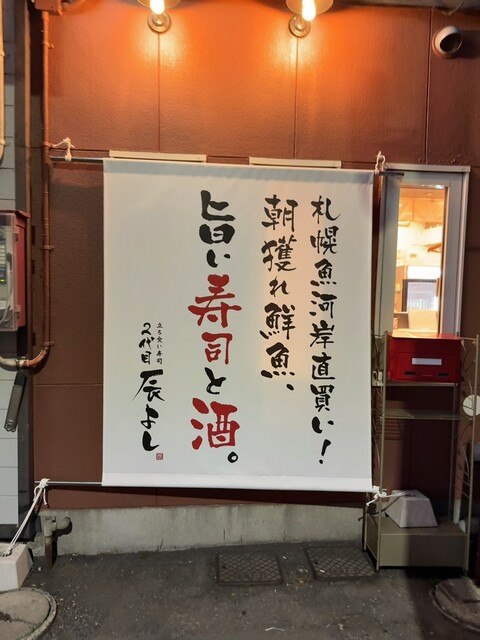 札幌魚河岸直買い!
朝獲れ鮮魚、
旨い寿司と酒。
立ち食い寿司
2代目 辰よし